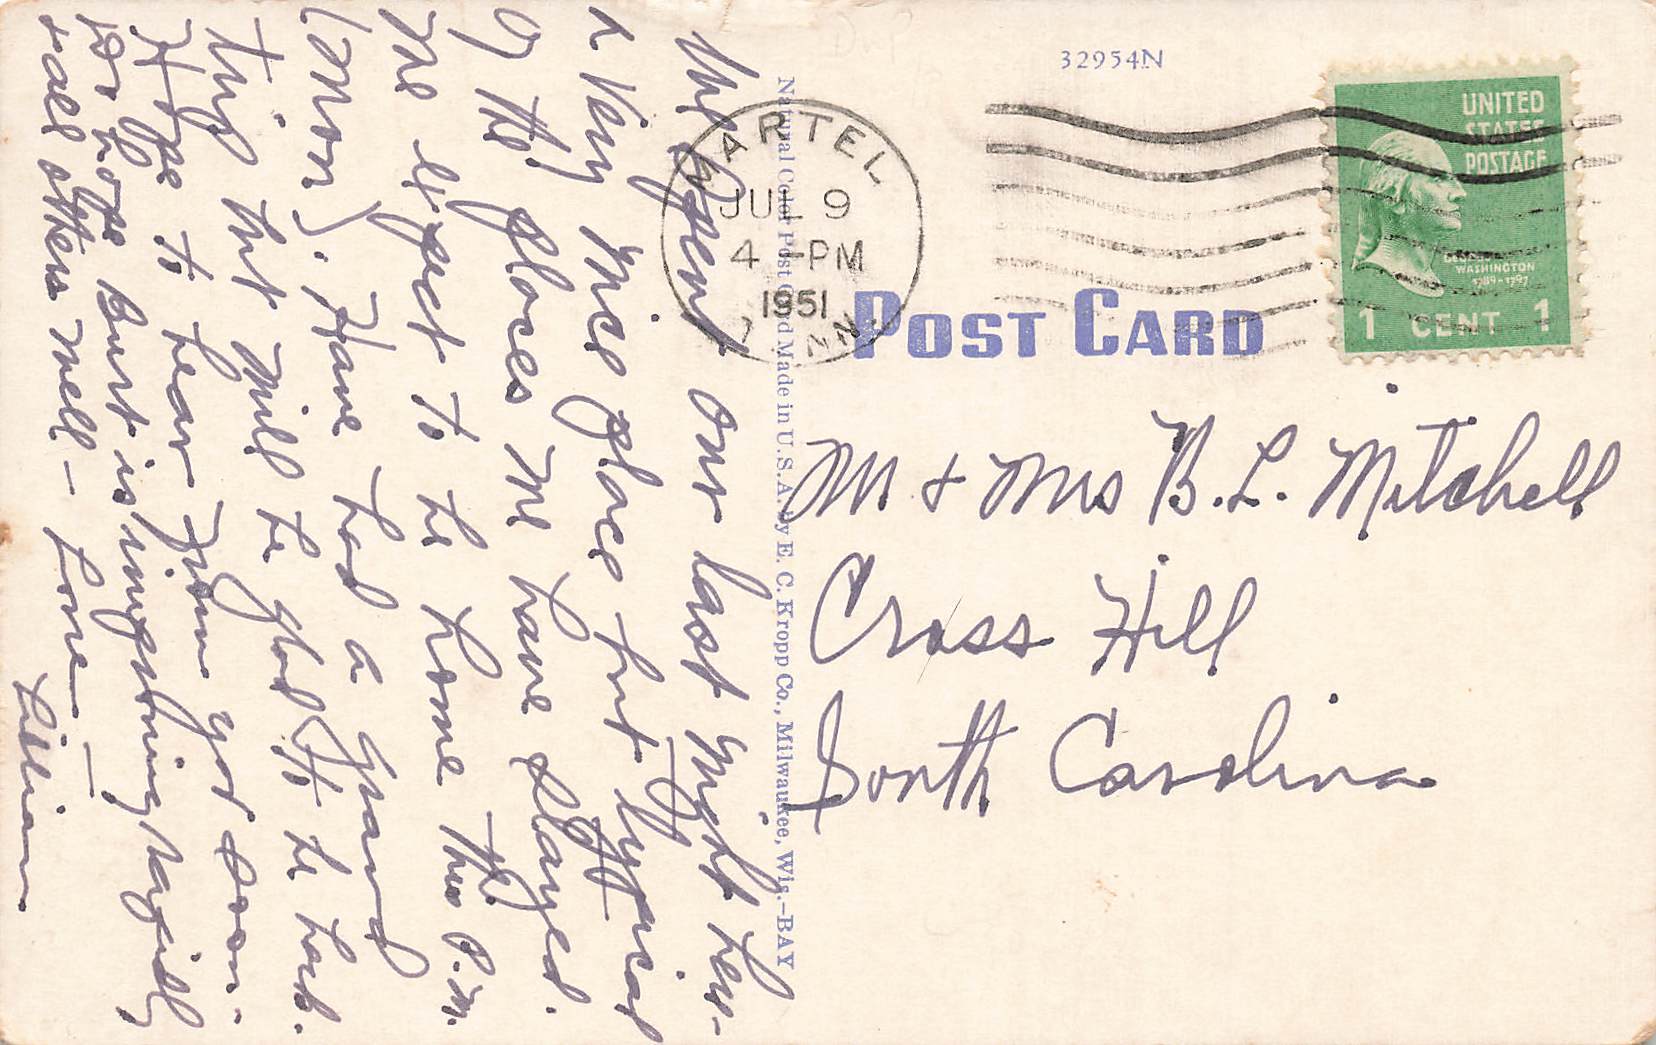 We spent our last night here–
a very nice place but typical
of the places we have stayed.
We expect to be home this P.M.
(Mon). Have had a grand
trip but will be glad to be back.
Hope to hear from you soon.
So hope Burt is improving rapidly
& all others well – Love –
Lillian
MARTEL
JUL 9
4 -PM
1951
TENN.
National Color Post Card Made in U. S. A. by E. C. Kropp Co., Milwaukee, Wis.–BAY
32954N
UNITED
STATES
POSTAGE
WASHINGTON
1789-1797
1 CENT 1
POST CARD
M & Mrs B. L. Mitchell
Cross Hill
South Carolina